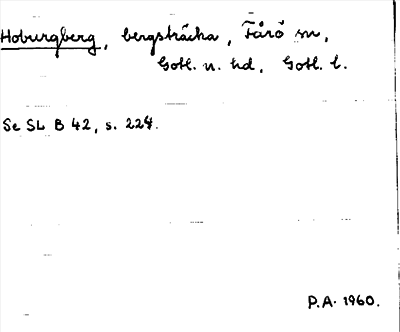 Hoburgberg, bergsträcka, Fårö sn,
Gotl. n. hd, Gotl. l.
Se SL B 42, s. 224.
P.A. 1960.